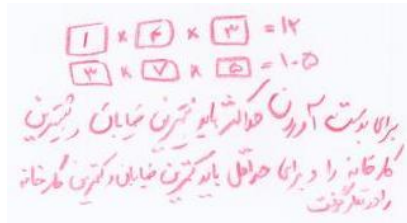 ۱ × ۴ × ۳ = ۱۲
۳ × ۷ × ۵ = ۱۰۵
برای بدست آوردن حداکثر باید بیشترین خیابان و بیشترین
کارخانه را و برای حداقل باید کمترین خیابان و کمترین کارخانه
را در نظر گرفت